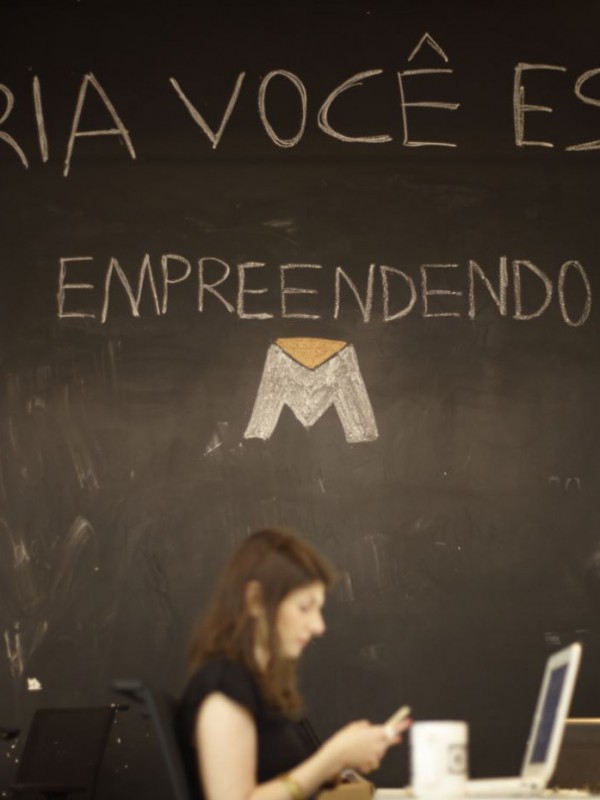 RIA VOCÊ ES
EMPREENDENDO
M